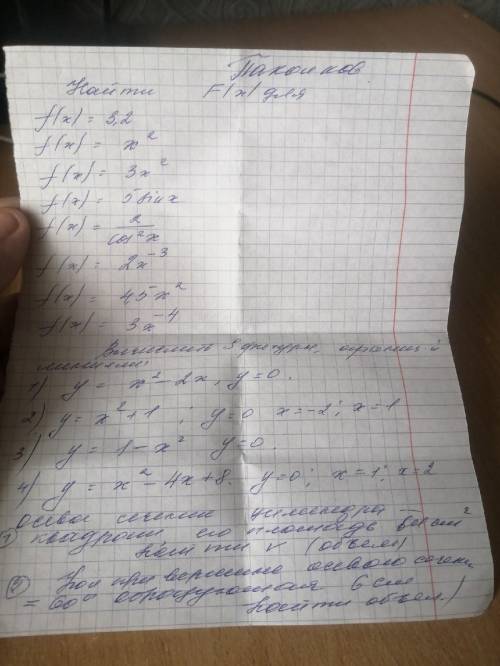 Найти F(x) для
f(x) = 3,2
f(x) = x²
f(x) = 3x²
f(x) = 5 sin x
f(x) = 2/cos²x
f(x) = 2x⁻³
f(x) = 45x²
f(x) = 3x⁻⁴
Вычислить S фигуры, огранич-й
линиями:
1) y = x² - 2x, y = 0.
2) y = x² + 1 ; y = 0 x = -2; x = 1
3) y = 1 - x² y = 0.
4) y = x² - 4x + 8. y = 0; x = 1; x = 2
① осевое сечение цилиндра —
квадрат его площадь см²
Найти V (объем)
② при вершине осевого сечен.
= 60° образующая 6 см
Найти объем)